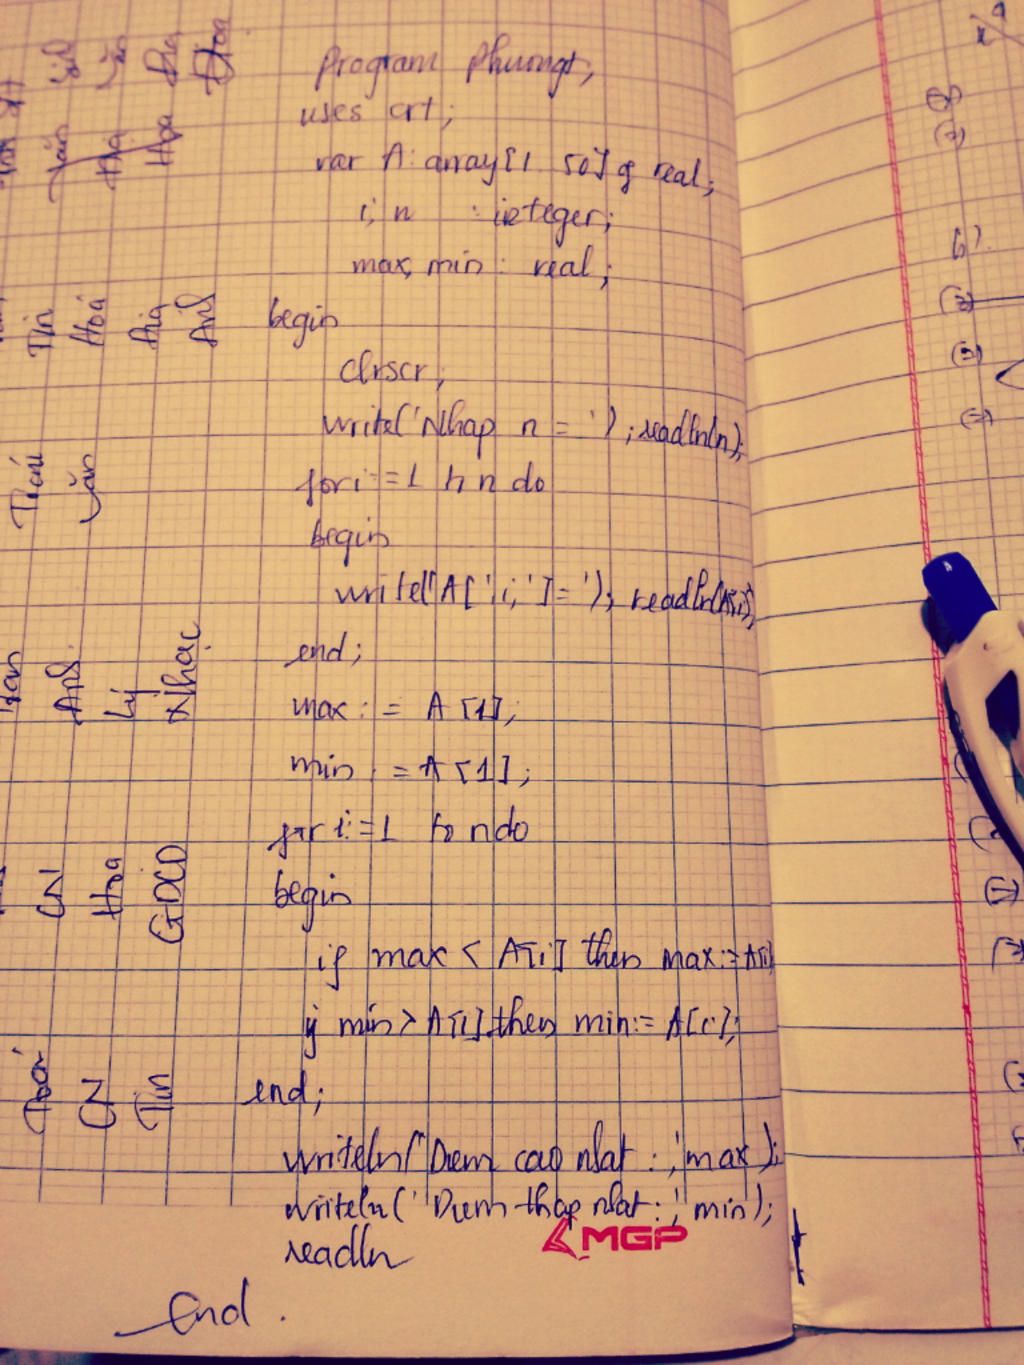 Program phuongt;
uses crt;
var A: array[1 50] of real;
i, n : integer;
max, min : real;
begin
clrscr;
write('Nhap n = '); readln(n);
for i:=1 to n do
begin
write('A[',i,']='); readln(A[i]);
end;
max := A[1];
min := A[1];
for i:=1 to n do
begin
if max < A[i] then max:=A[i]
if min > A[i] then min:= A[i];
end;
writeln('Diem cao nhat : ',max);
writeln('Diem thap nhat: ',min);
readln
End.
MGP
Sinh
Văn
Địa
Hoá
Tin
Hoá
Địa
Anh
Toán
Văn
Anh
Lý
Nhạc
CN
Hoá
GDCD
Toán
CN
Tin